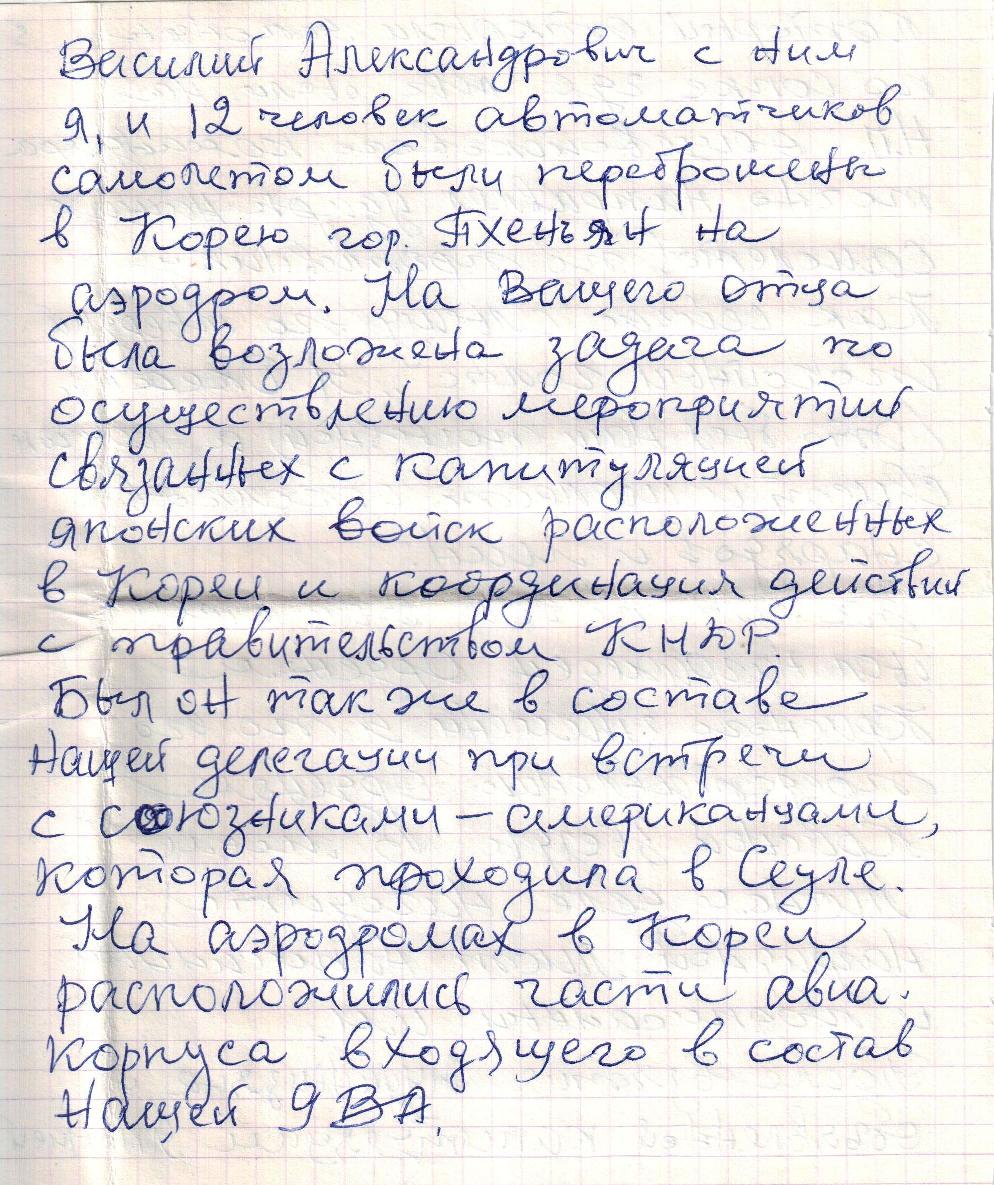 Василий Александрович с ним
я, и 12 человек автоматчиков
самолетом были переброшены
в Корею гор. Пхеньян на
аэродром. На Вашего отца
была возложена задача по
осуществлению мероприятий
связанных с капитуляцией
японских войск расположенных
в Кореи и координация действий
с правительством КНДР.
Был он так же в составе
нашей делегации при встречи
с союзниками – американцами,
которая проходила в Сеуле.
На аэродромах в Кореи
расположились части авиа.
корпуса входящего в состав
нашей 9 ВА.